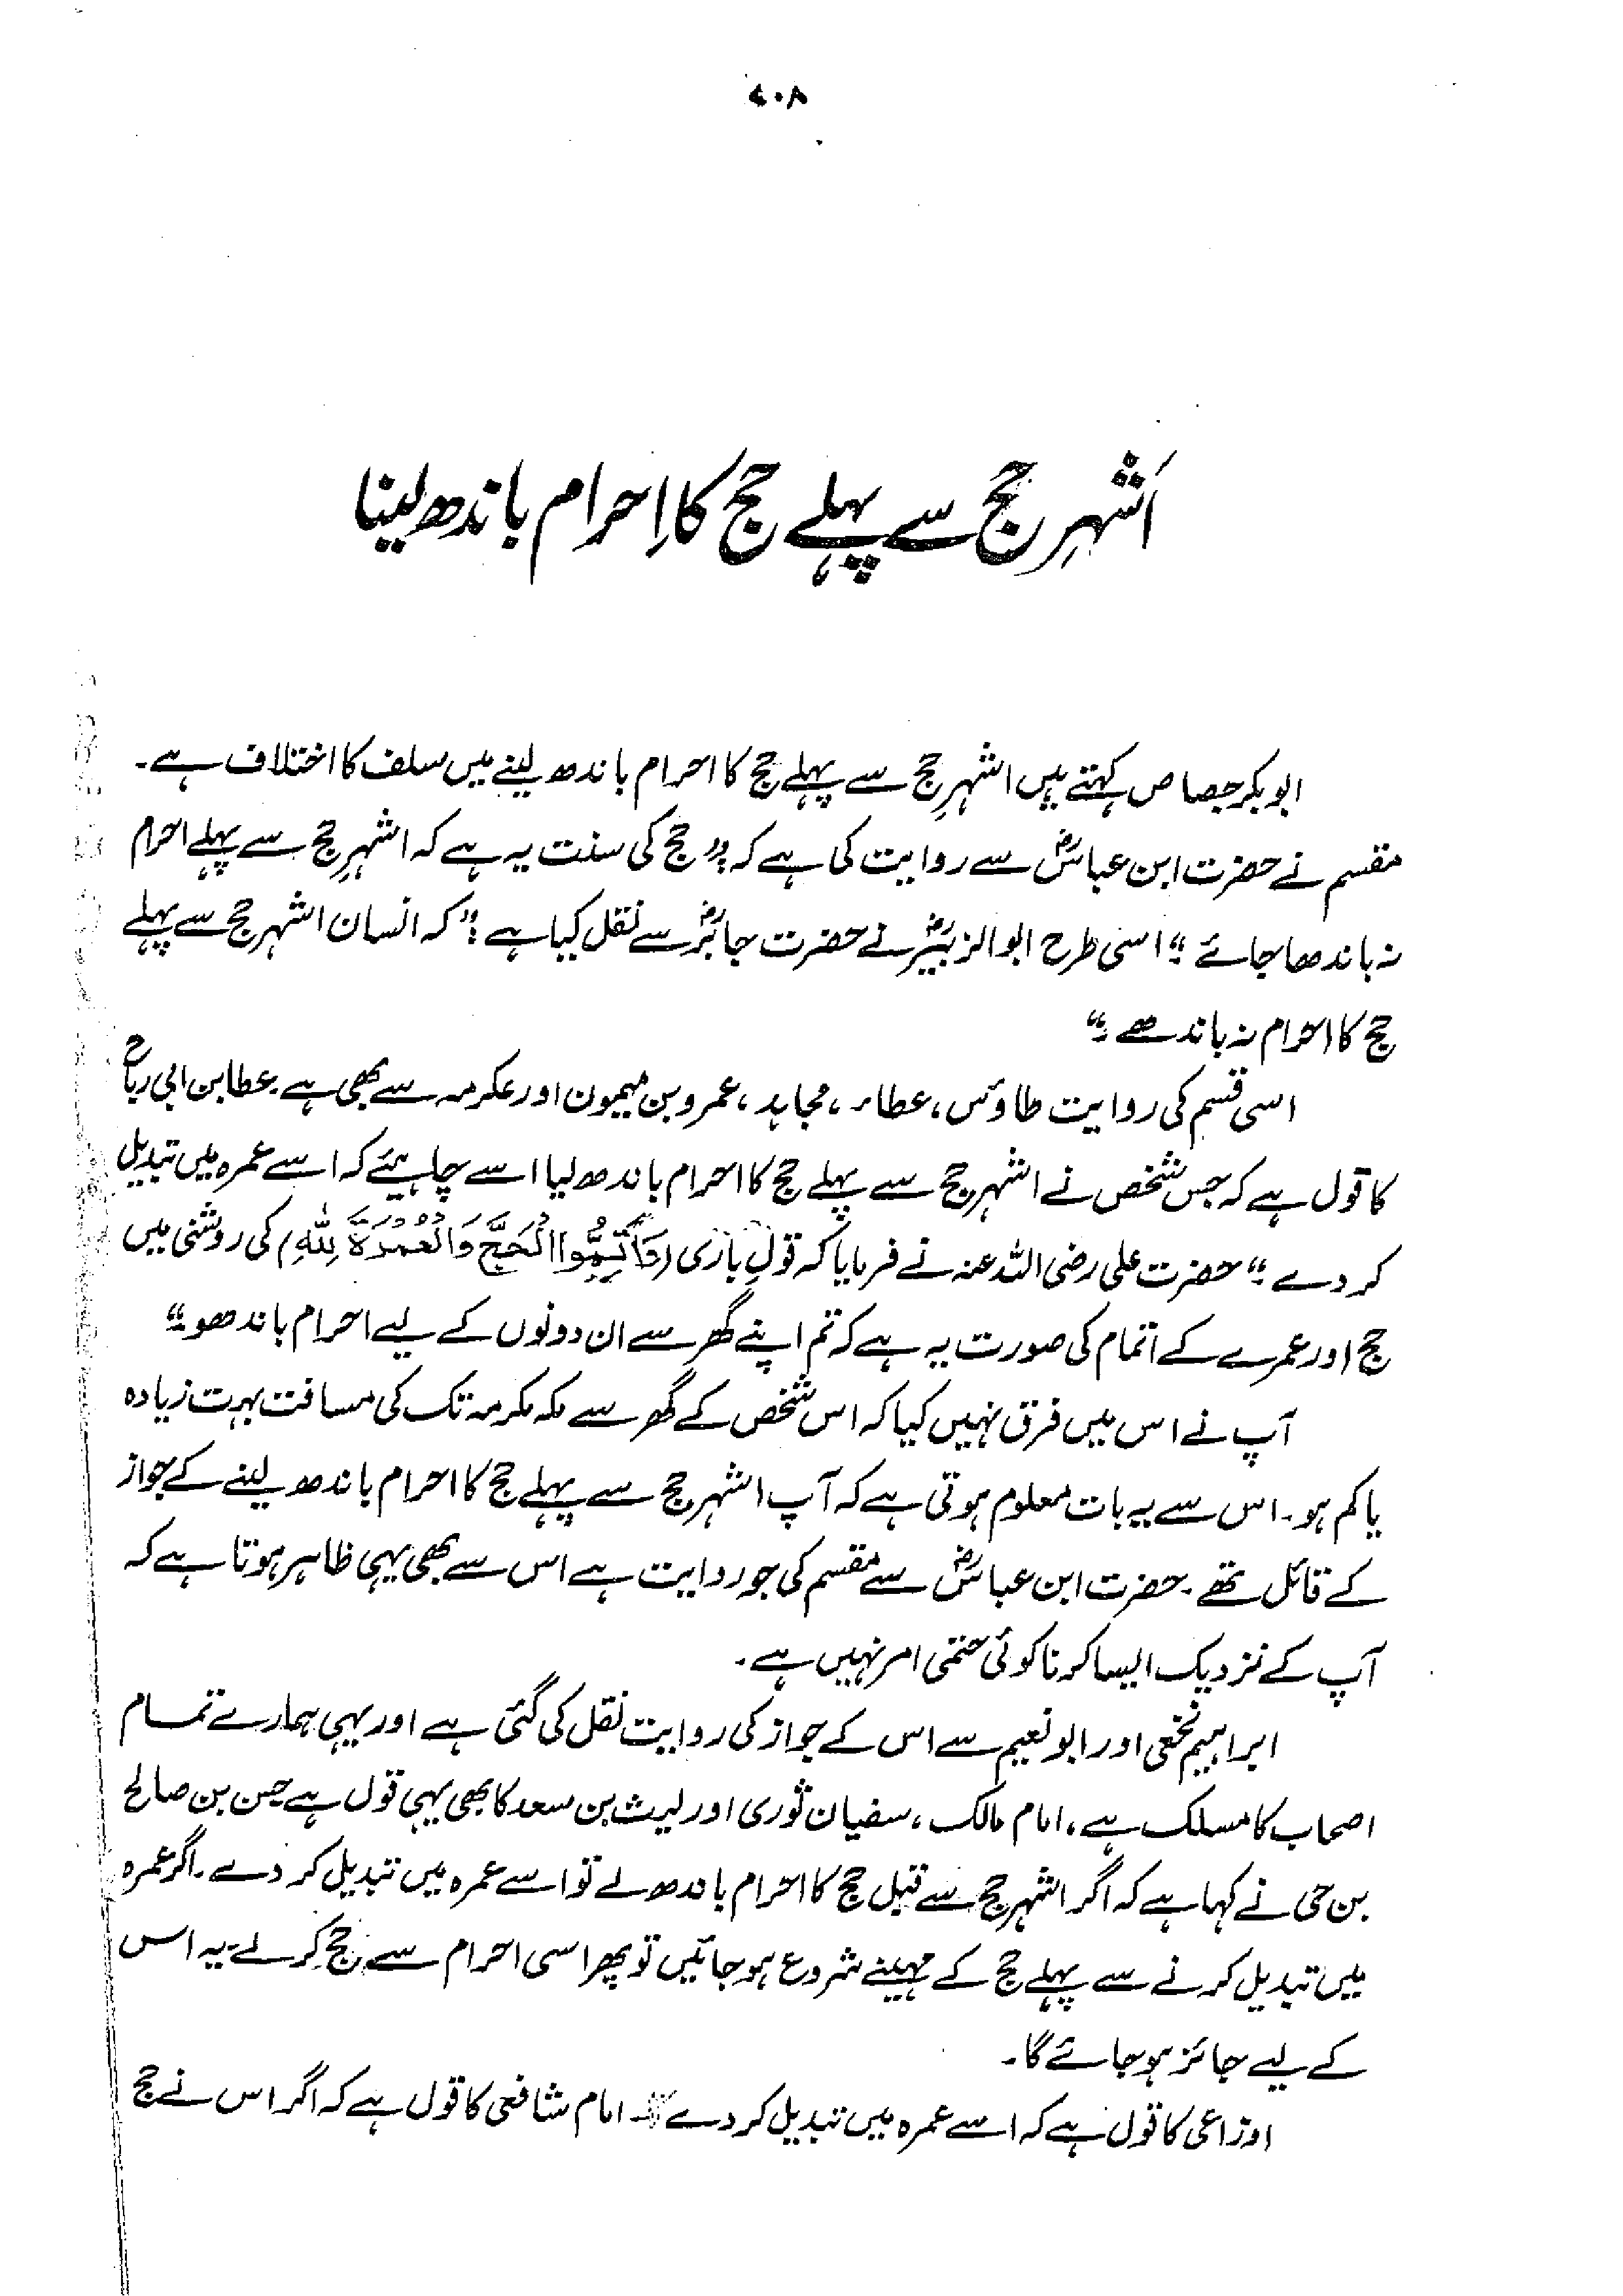 ۷۰۸
اَشہرِ حج سے پہلے حج کا اِحرام باندھ لینا
ابو بکر جصاص کہتے ہیں اشہرِ حج سے پہلے حج کا احرام باندھ لینے میں سلف کا اختلاف ہے۔
مقسم نے حضرت ابن عباسؓ سے روایت کی ہے کہ "حج کی سنت یہ ہے کہ اشہرِ حج سے پہلے احرام
نہ باندھا جائے" اسی طرح ابوالزبیرؓ نے حضرت جابرؓ سے نقل کیا ہے" کہ انسان اشہر حج سے پہلے
حج کا احرام نہ باندھے"
اسی قسم کی روایت طاؤس، عطاء، مجاہد، عمرو بن میمون اور عکرمہ سے بھی ہے۔ عطا بن ابی رباح
کا قول ہے کہ جس شخص نے اشہر حج سے پہلے حج کا احرام باندھ لیا اسے چاہیئے کہ اسے عمرہ میں تبدیل
کر دے" حضرت علی رضی اللہ عنہ نے فرمایا کہ قولِ باری (وَاَتِمُّوا الْحَجَّ وَالْعُمْرَةَ لِلّٰهِ) کی روشنی میں
حج اور عمرے کے اتمام کی صورت یہ ہے کہ تم اپنے گھر سے ان دونوں کے لیے احرام باندھو"
آپ نے اس میں فرق نہیں کیا کہ اس شخص کے گھر سے مکہ مکرمہ تک کی مسافت بہت زیادہ
یا کم ہو۔ اس سے یہ بات معلوم ہوتی ہے کہ آپ اشہر حج سے پہلے حج کا احرام باندھ لینے کے جواز
کے قائل تھے۔ حضرت ابن عباسؓ سے مقسم کی جو روایت ہے اس سے بھی یہی ظاہر ہوتا ہے کہ
آپ کے نزدیک ایسا کرنا کوئی حتمی امر نہیں ہے۔
ابراہیم نخعی اور ابو نعیم سے اس کے جواز کی روایت نقل کی گئی ہے اور یہی ہمارے تمام
اصحاب کا مسلک ہے، امام مالک، سفیان ثوری اور لیث بن سعد کا بھی یہی قول ہے حسن بن صالح
بن حی نے کہا ہے کہ اگر اشہر حج سے قبل حج کا احرام باندھ لے تو اسے عمرہ میں تبدیل کر دے۔ اگر عمرہ
میں تبدیل کرنے سے پہلے حج کے مہینے شروع ہو جائیں تو پھر اسی احرام سے حج کر لے یہ اس
کے لیے جائز ہو جائے گا۔
اوزاعی کا قول ہے کہ اسے عمرہ میں تبدیل کر دے۔ امام شافعی کا قول ہے کہ اگر اس نے حج